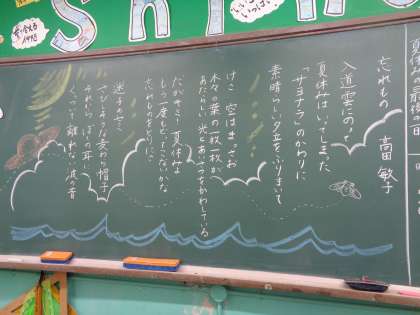 夏休み最後の一日
忘れもの　高田敏子
入道雲にのって
夏休みはいってしまった
「サヨナラ」のかわりに
素晴らしい夕立をふりまいて
けさ　空はまっさお
木々の葉の一枚一枚が
あたらしい光とあいさつをかわしている
だがキミ！夏休みよ
もう一度もどってこないかな
忘れものをとりにさ
迷子のセミ
さびしそうな麦わら帽子
それから　ぼくの耳に
くっついて離れない波の音